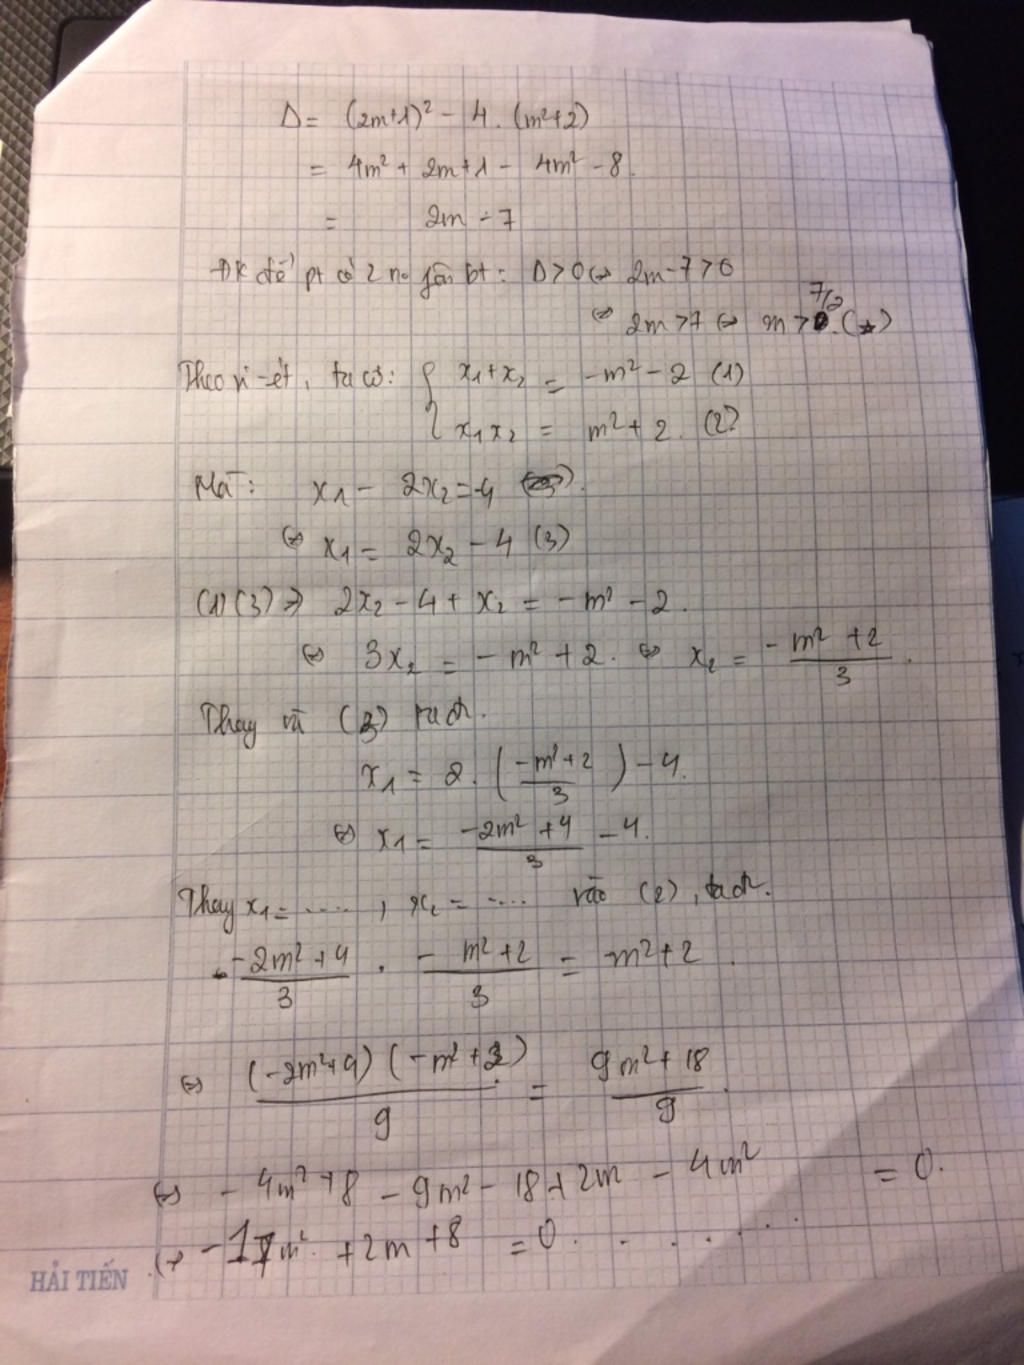 Δ = (2m+1)² - 4. (m²+2)
= 4m² + 2m+1 - 4m² - 8.
= 2m - 7
ĐK để pt có 2 no fân bt: Δ>0 ⇔ 2m-7>0
⇔ 2m>7 ⇔ m>7/2. (*)
Theo vi-ét, ta có: { x₁+x₂ = -m² - 2 (1)
x₁x₂ = m² + 2. (2)
Mà: x₁ - 2x₂ = -4
⇔ x₁ = 2x₂ - 4 (3)
(1)(3) ⇒ 2x₂ - 4 + x₂ = -m² - 2.
⇔ 3x₂ = -m² + 2. ⇔ x₂ = (-m² + 2)/3.
Thay và (3) ta đc.
x₁ = 2. ((-m²+2)/3) - 4.
⇔ x₁ = (-2m² + 4)/3 - 4.
Thay x₁ = ....., x₂ = .... vào (2), ta đc.
(-2m² + 4)/3 . (-m² + 2)/3 = m² + 2.
⇔ (-2m²+4)(-m²+2)/9 = (9m² + 18)/9.
⇔ -4m² + 8 - 9m² - 18 + 2m - 4m² = 0.
⇔ -17m² + 2m + 8 = 0. . . . . . .
HẢI TIẾN